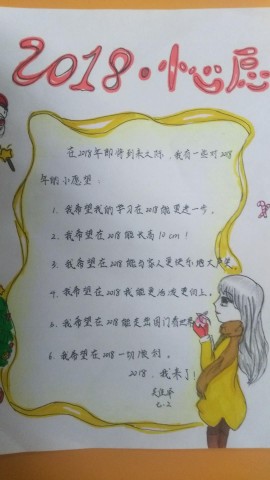 2018·小心愿
在2018年即将到来之际，我有一些对2018
年的小愿望：
1. 我希望我的学习在2018能更进一步。
2. 我希望在2018能长高10cm！
3. 我希望在2018能与家人更快乐地大声笑
4. 我希望在2018我能更活泼更向上。
5. 我希望在2018能走出国门看世界
6. 我希望在2018一切顺利。
2018，我来了！